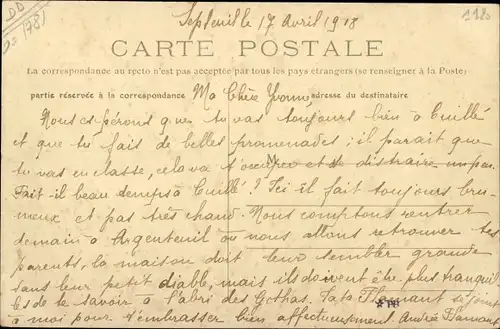 Septeuil le 17 Avril 1918
CARTE POSTALE
La correspondance au recto n'est pas acceptée par tous les pays étrangers (se renseigner à la Poste)
partie réservée à la correspondance Ma Chère Yvonne adresse du destinataire
Nous espérons que tu vas toujours bien à Cuillé
et que tu fais de belles promenades; il parait que
tu vas en classe, cela va t'occuper et te distraire un peu.
Fait-il beau temps à Cuillé? Ici il fait toujours bru-
meux et pas très chaud. Nous comptons rentrer
demain à Argenteuil où nous allons retrouver tes
parents, la maison doit leur sembler grande
sans leur petit diable, mais ils doivent être plus tranquil
les de te savoir à l'abri des Gothas. Papa se joint
à moi pour t'embrasser bien affectueusement Andrée